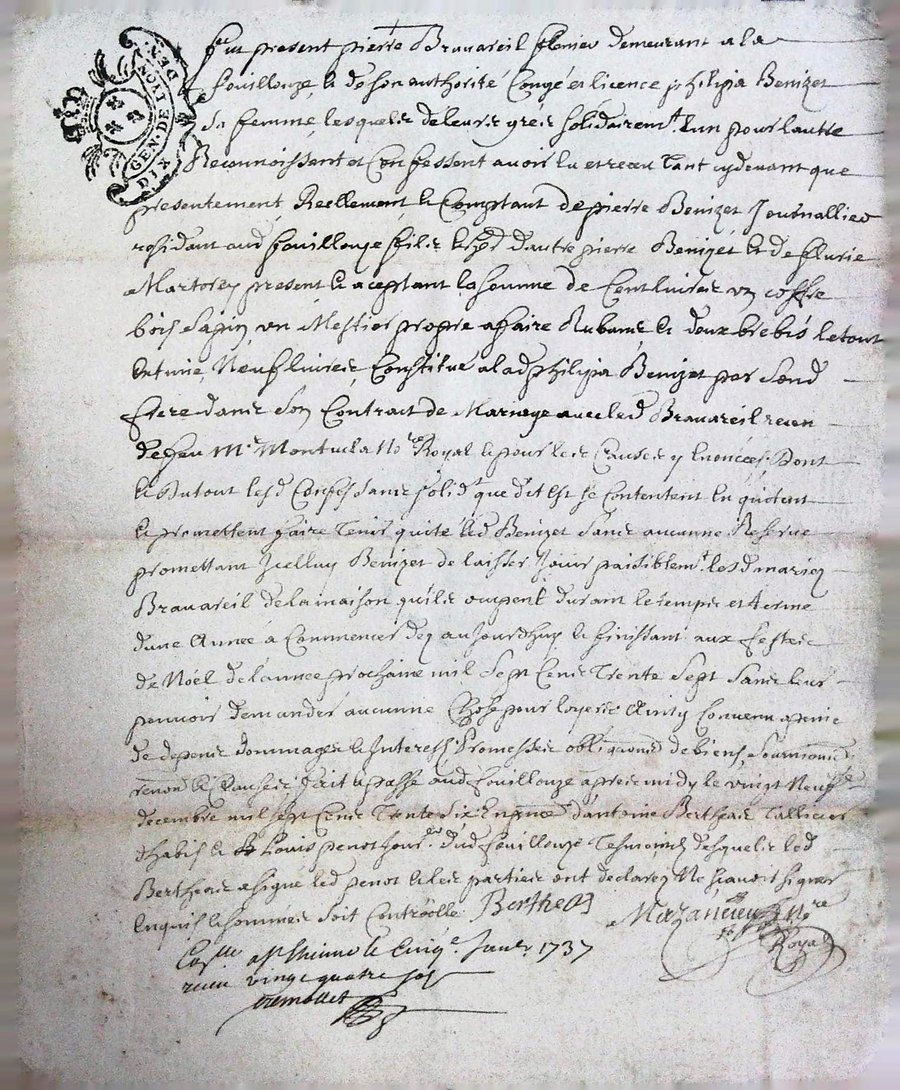 GEN. DE LYON
DIX DEN.
fut present pierre Brauareil demeurant a la
fouillouze, & de son authorité Congé et licence philipa Benizet
sa femme, lesquels de leurs grés solidairemt. l'un pour l'autre
Reconnoissent et Confessent auoir eu et receu tant cy deuant que
presentement, Reellement & Comptant de pierre Benizet Journallier
residant aud. fouillouze fils & d'autre pierre Benizet & de fleurie
Martorey present & aceptant la somme de Cent liures un coffre
bois sapin, un Mestier propre a faire Rubans & deux brebis le tout
Neuf liures, Constitué a lad. philipa Benizet par sond.
frere dans son Contract de Mariage auec led. Brauareil receu
de feu Me. Montucla Nore. Royal & pour les Causes y Enoncées. Dont
& du tout lesd. Confessants solidt. que dit est se Contentent En quitent
& promettent faire tenir quite led. Benizet sans aucunne Reserue
promettant Jcelluy Benizet de laisser Jouir paisiblemt. lesd. mariez
Brauareil de la maison qu'ils occupent durant le temps et terme
d'une Année a Commencer dez aujourdhuy & finissant aux festes
de Noél de l'année prochaine mil sept Cens Trente sept sans leur
pouuoir demander aucunne Chose pour loyers Ainsy Conuenu a peine
de depens dommages & Interess Promesses obligaons. de biens, soumissions
renon. & Clauses fait & passé aud. fouillouze apres midy le vingt Neuf
decembre mil sept Cens Trente six En pnce. d'antoine Bertheas Tallieur
d'habis & Louis penot dud. fouillouze Tesmoins desquels led.
Bertheas a signé led. penot & les parties ont declarez Ne scauoir signer
Enquis & sommés soit Controollé. Bertheas
Mazancieux Nre.
Royal
Collé a st. hienne le Cinqe. Janer. 1737
receu vingt quatre sols
tremollet